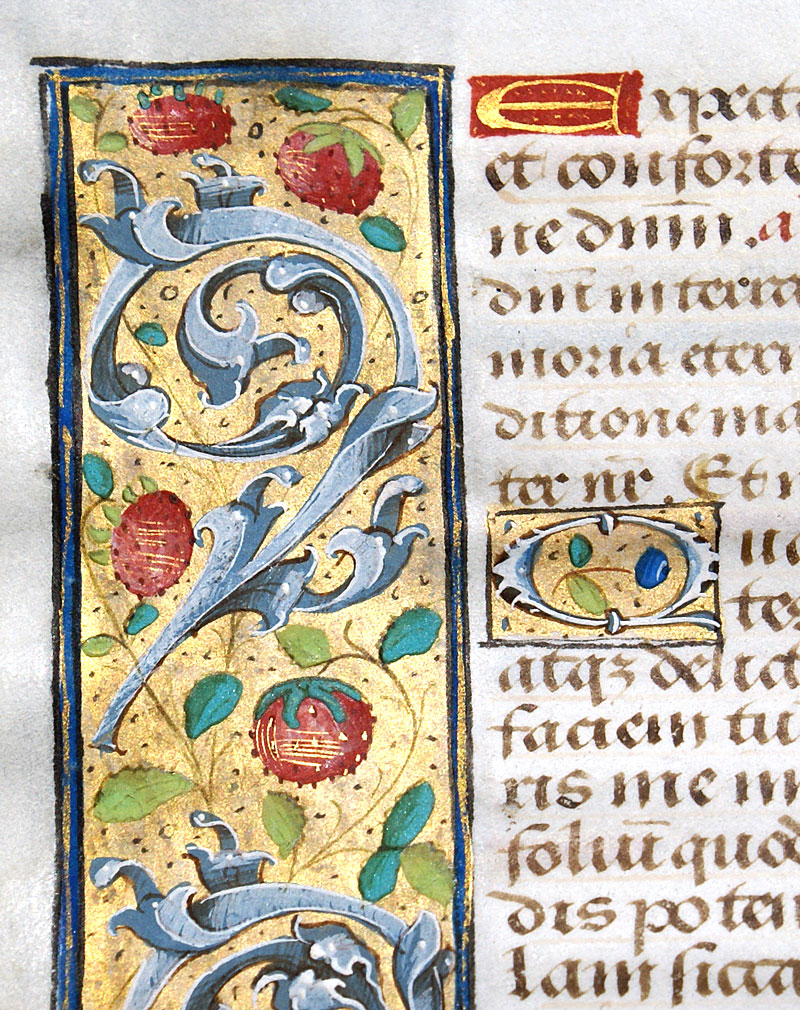 Expecta
et conforte
ne dn̄m . a
dn̄i in terra
moria etern
ditione ma
ter nr̄ . Et n
Qua
tes
atqꝫ delict
faciem tu
ris me in
foliū quod
dis poten
lam sicca